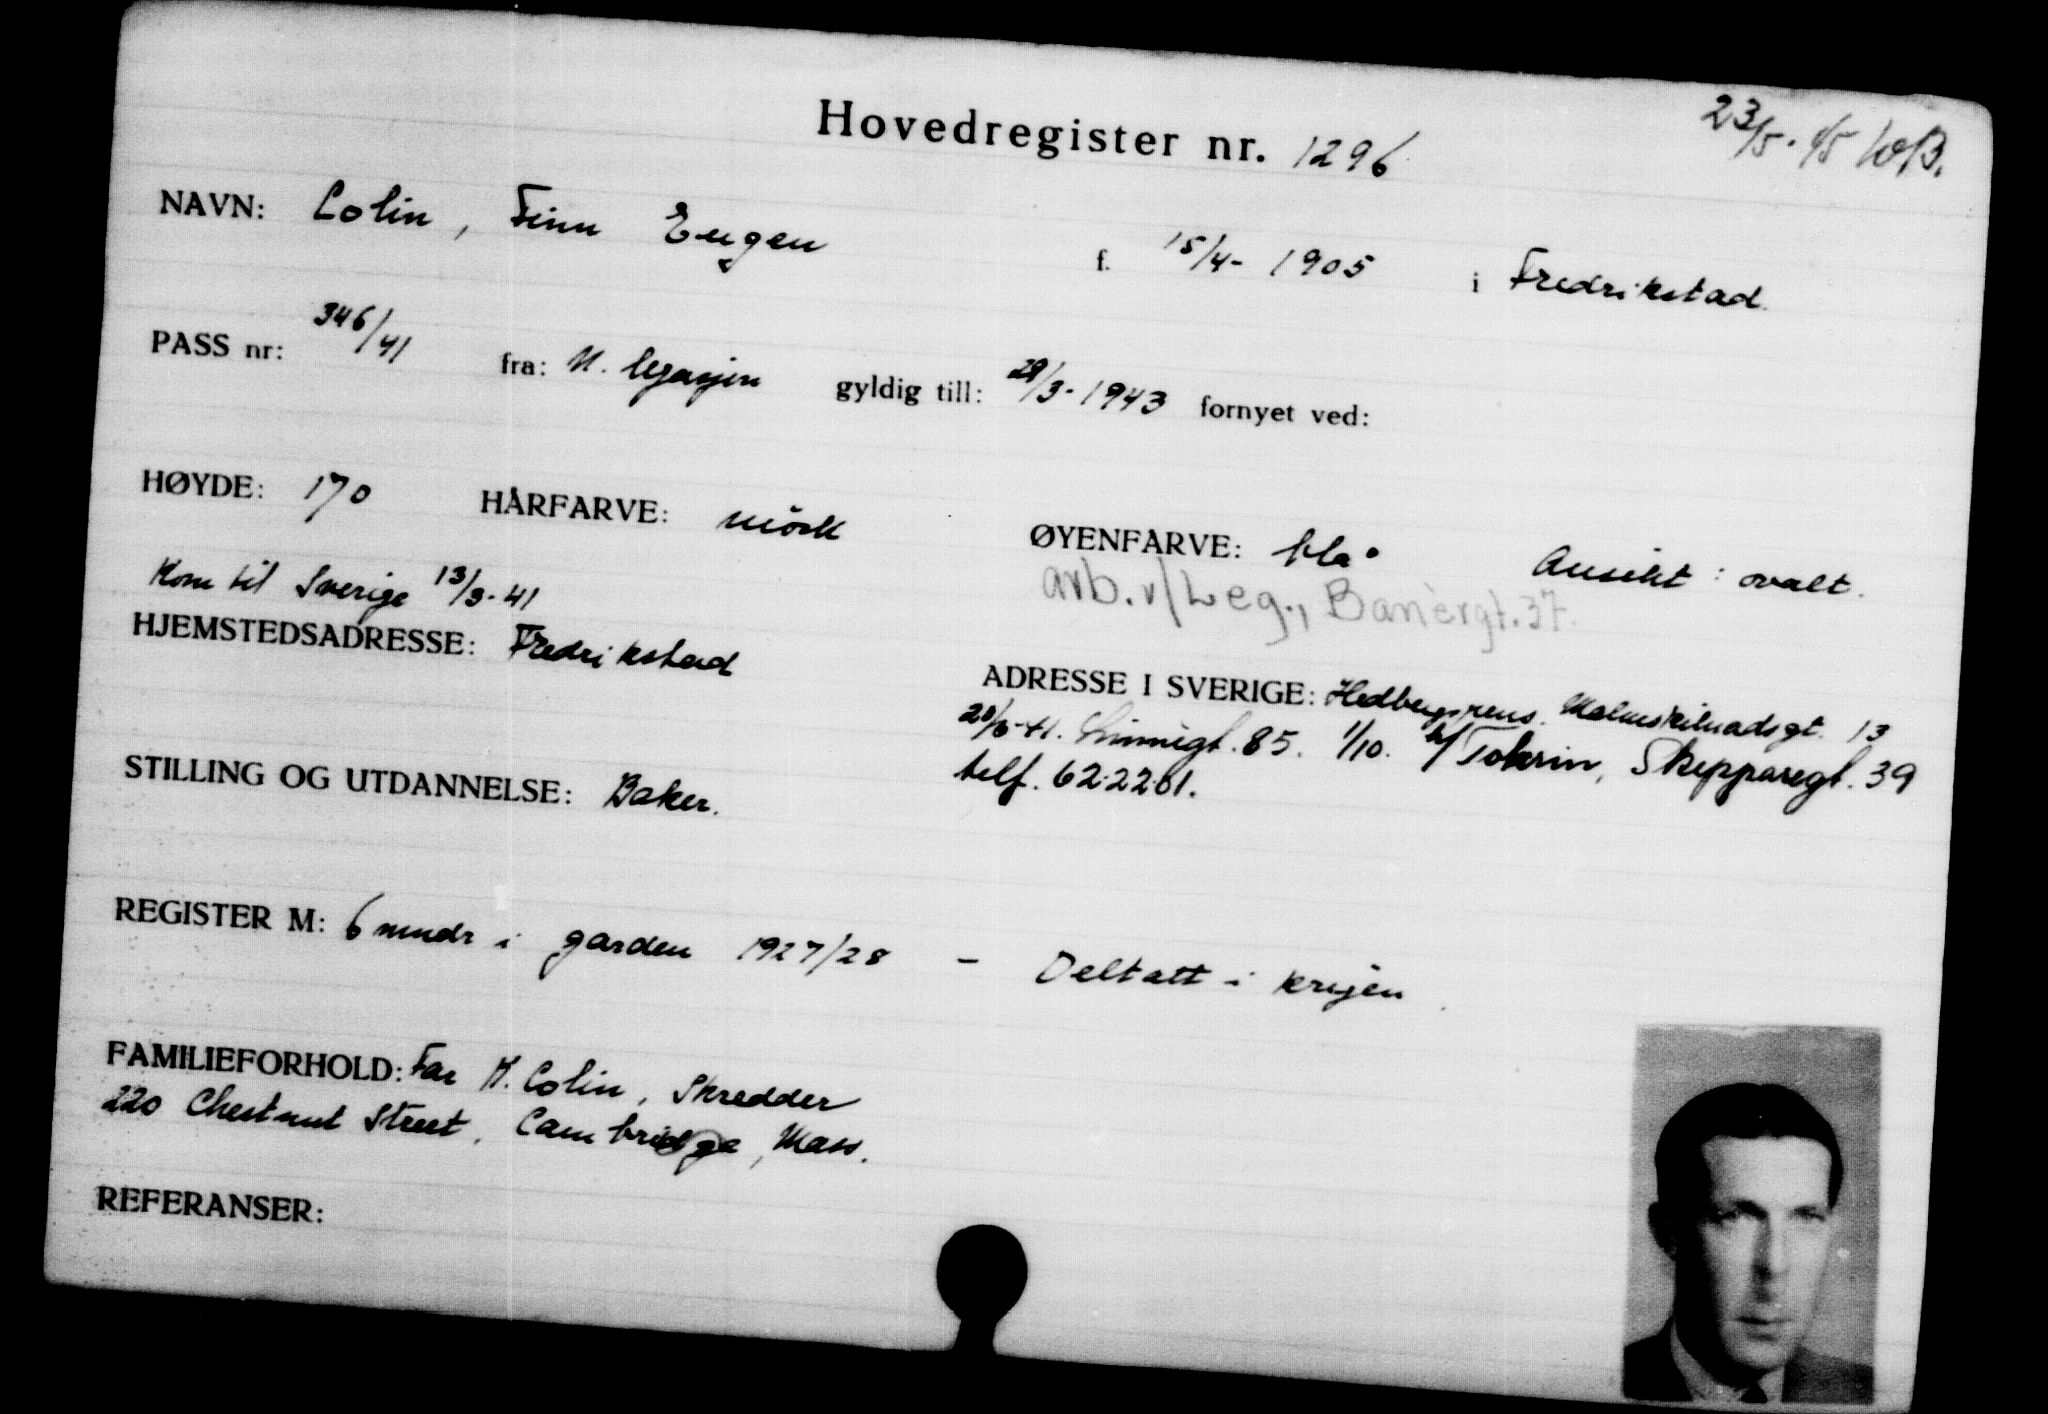 23/5-45 WB.
Hovedregister nr. 1296
NAVN: Colin, Finn Eugen f. 15/4-1905 i Fredrikstad.
PASS nr: 346/41 fra: N. legasjon gyldig till: 29/3-1943 fornyet ved:
HØYDE: 170 HÅRFARVE: mörk ØYENFARVE: blå Ansikt: ovalt.
Kom til Sverige 13/3-41 arb. v/Leg., Banérgt. 37.
HJEMSTEDSADRESSE: Fredrikstad ADRESSE I SVERIGE: Malmskilnadsgt. 13
Linnégt. 85. 1/10. Skepparegt. 39
telf. 62.22.01.
STILLING OG UTDANNELSE: Baker.
REGISTER M: 6 mndr i garden 1927/28 - Deltatt i krigen.
FAMILIEFORHOLD: Far K. Colin, Skredder
220 Chestnut Street, Cambridge, Mass.
REFERANSER: